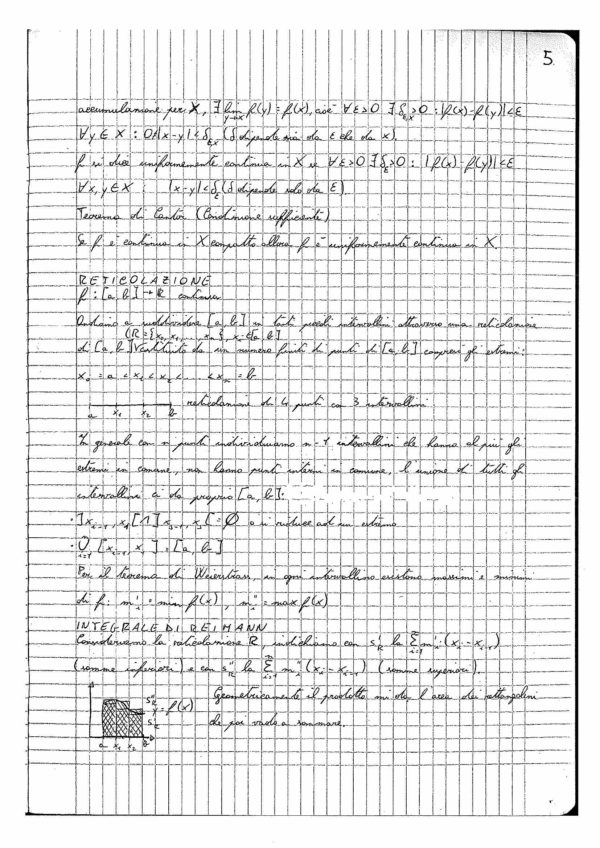 5
accumulazione per X, ∃ lim f(y) = f(x), cioè ∀ε>0 ∃δ_{ε,x}>0 : |f(x)-f(y)|<ε
y→x
∀y∈X : 0≠|x-y|<δ_{ε,x} (δ dipende sia da ε che da x).
f si dice uniformemente continua in X se ∀ε>0 ∃δ_ε>0 : |f(x)-f(y)|<ε
∀x,y∈X : |x-y|<δ_ε (δ dipende solo da ε).
Teorema di Cantor (Condizione sufficiente)
Se f è continua in X compatto allora f è uniformemente continua in X.
RETICOLAZIONE
f : [a,b] → R continua
Andiamo a suddividere [a,b] in tanti piccoli intervallini attraverso una reticolazione
(R = {x₀, x₁, ..., xₙ}, xᵢ∈[a,b]
di [a,b] costituita da un numero finito di punti di [a,b] compresi gli estremi:
x₀ = a < x₁ < x₂ < ... < xₙ = b
reticolazione di 4 punti con 3 intervallini
a x₁ x₂ b
In generale con n punti individuiamo n-1 intervallini che hanno al più gli
estremi in comune, non hanno punti interni in comune, l'unione di tutti gli
intervallini ci dà proprio [a,b]:
· ]xᵢ₋₁, xᵢ[ ∩ ]xₛ₋₁, xₛ[ = ∅ o si riduce ad un estremo
· ∪ᵢ₌₁ [xᵢ₋₁, xᵢ] = [a,b]
Per il teorema di Weierstrass, in ogni intervallino esistono massimi e minimi
di f: m'ᵢ = min f(x), m''ᵢ = max f(x)
INTEGRALE DI REIMANN
Consideriamo la reticolazione R, indichiamo con s'_R la Σᵢ₌₁ m'ᵢ (xᵢ-xᵢ₋₁)
(somme inferiori) e con s''_R la Σᵢ₌₁ m''ᵢ (xᵢ-xᵢ₋₁) (somme superiori).
Geometricamente il prodotto mi dà l'area dei rettangolini
che poi vado a sommare.
s''_R
y=f(x)
s'_R
a x₁ x₂ b